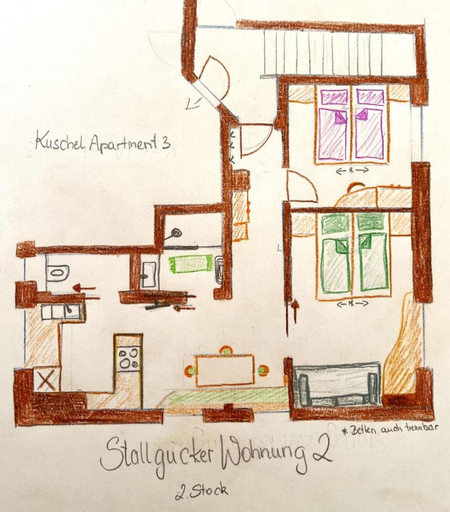 Kuschel Apartment 3
* Betten auch trennbar
Stallgucker Wohnung 2
2. Stock